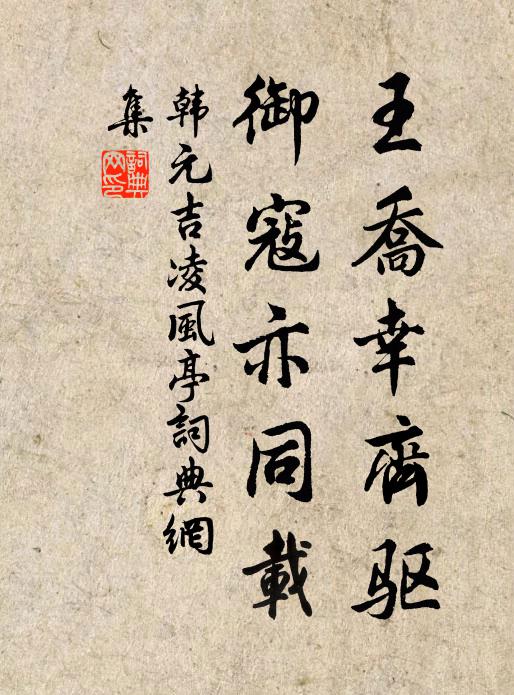 王喬幸齊驱
御寇亦同載
韩元吉凌風亭詞典網
集
詞典
网印